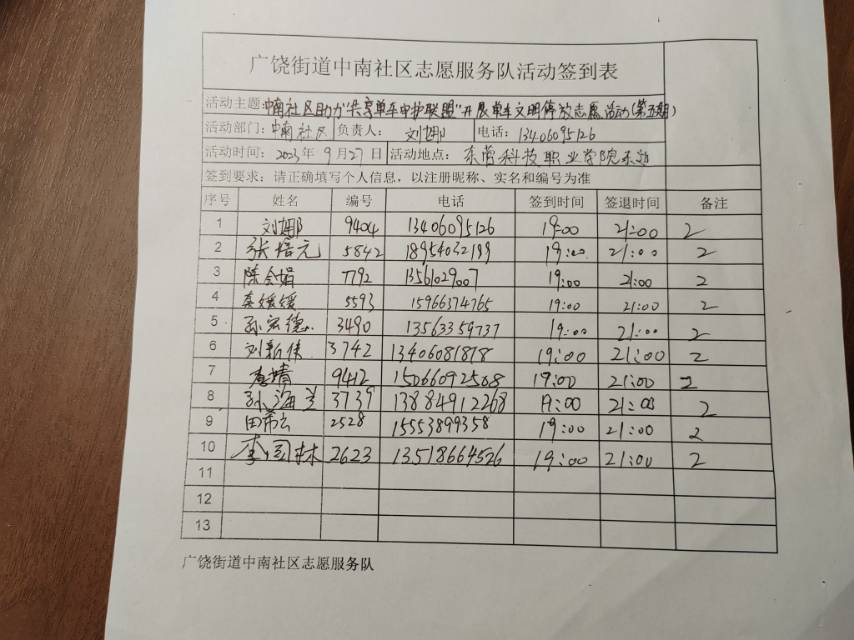 广饶街道中南社区志愿服务队活动签到表
活动主题:中南社区助力"共享单车守护联盟"开展单车文明停放志愿活动(第五期)
活动部门:中南社区 负责人: 刘娜 电话:13406095126
活动时间: 2023年9月27日 活动地点: 东营科技职业学院东边
签到要求:请正确填写个人信息,以注册昵称、实名和编号为准
序号 姓名 编号 电话 签到时间 签退时间 备注
1 刘娜 9404 13406095126 19:00 21:00 2
2 张培元 5842 18954032199 19:00 21:00 2
3 陈会娟 7792 13561029007 19:00 21:00 2
4 李媛媛 5593 15966374765 19:00 21:00 2
5 孙宏德 3490 13563359737 19:00 21:00 2
6 刘新伟 3742 13406081878 19:00 21:00 2
7 9412 15066092568 19:00 21:00 2
8 孙海兰 3739 13884912268 19:00 21:00 2
9 田希云 2528 15553899358 19:00 21:00 2
10 李司林 2623 13518664526 19:00 21:00 2
11
12
13
广饶街道中南社区志愿服务队